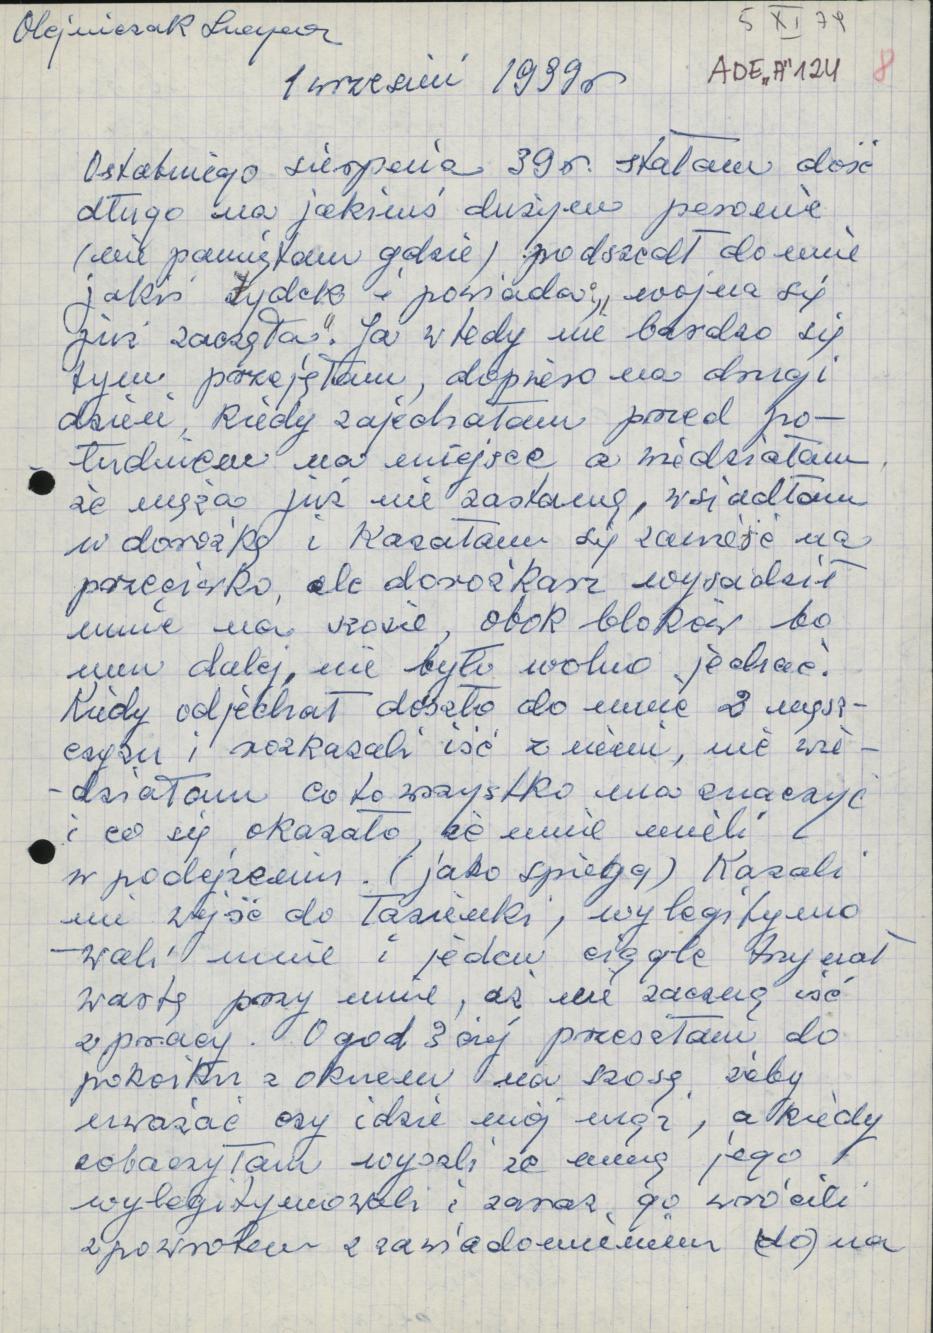 Olejniczak Lucyna
5 XI 79
1 wrzesień 1939r
ADE„A"124 8
Ostatniego sierpnia 39r. stałam dość
długo na jakimś dużym peronie
(nie pamiętam gdzie) podszedł do mnie
jakiś żydek i powiada „wojna się
już zaczęła". Ja wtedy nie bardzo się
tym przejęłam, dopiero na drugi
dzień, kiedy zajechałam przed po-
łudniem na miejsce a wiedziałam,
że męża już nie zastanę, wsiadłam
w dorożkę i kazałam się zawieść na
przeciwko, ale dorożkarz wysadził
mnie na szosie, obok bloków bo
mu dalej, nie było wolno jechać.
Kiedy odjechał doszło do mnie 2 męsz-
czyzn i rozkazali iść z niemi, nie wie-
-działam co to wszystko ma znaczyć
i co się okazało, że mnie mieli
w podejrzeniu. (jako śpiega) Kazali
mi wyjść do łazienki, wylegitymo
-wali mnie i jeden ciągle trzymał
wartę przy mnie, aż nie zaczną iść
z pracy. O god 3 ciej przeszłam do
pokoiku z oknem na szosę żeby
uważać czy idzie mój mąż, a kiedy
zobaczyłam wyszli ze mną jego
wylegitymowali i zaraz go wrócili
zpowrotem z zawiadomieniem (do) na